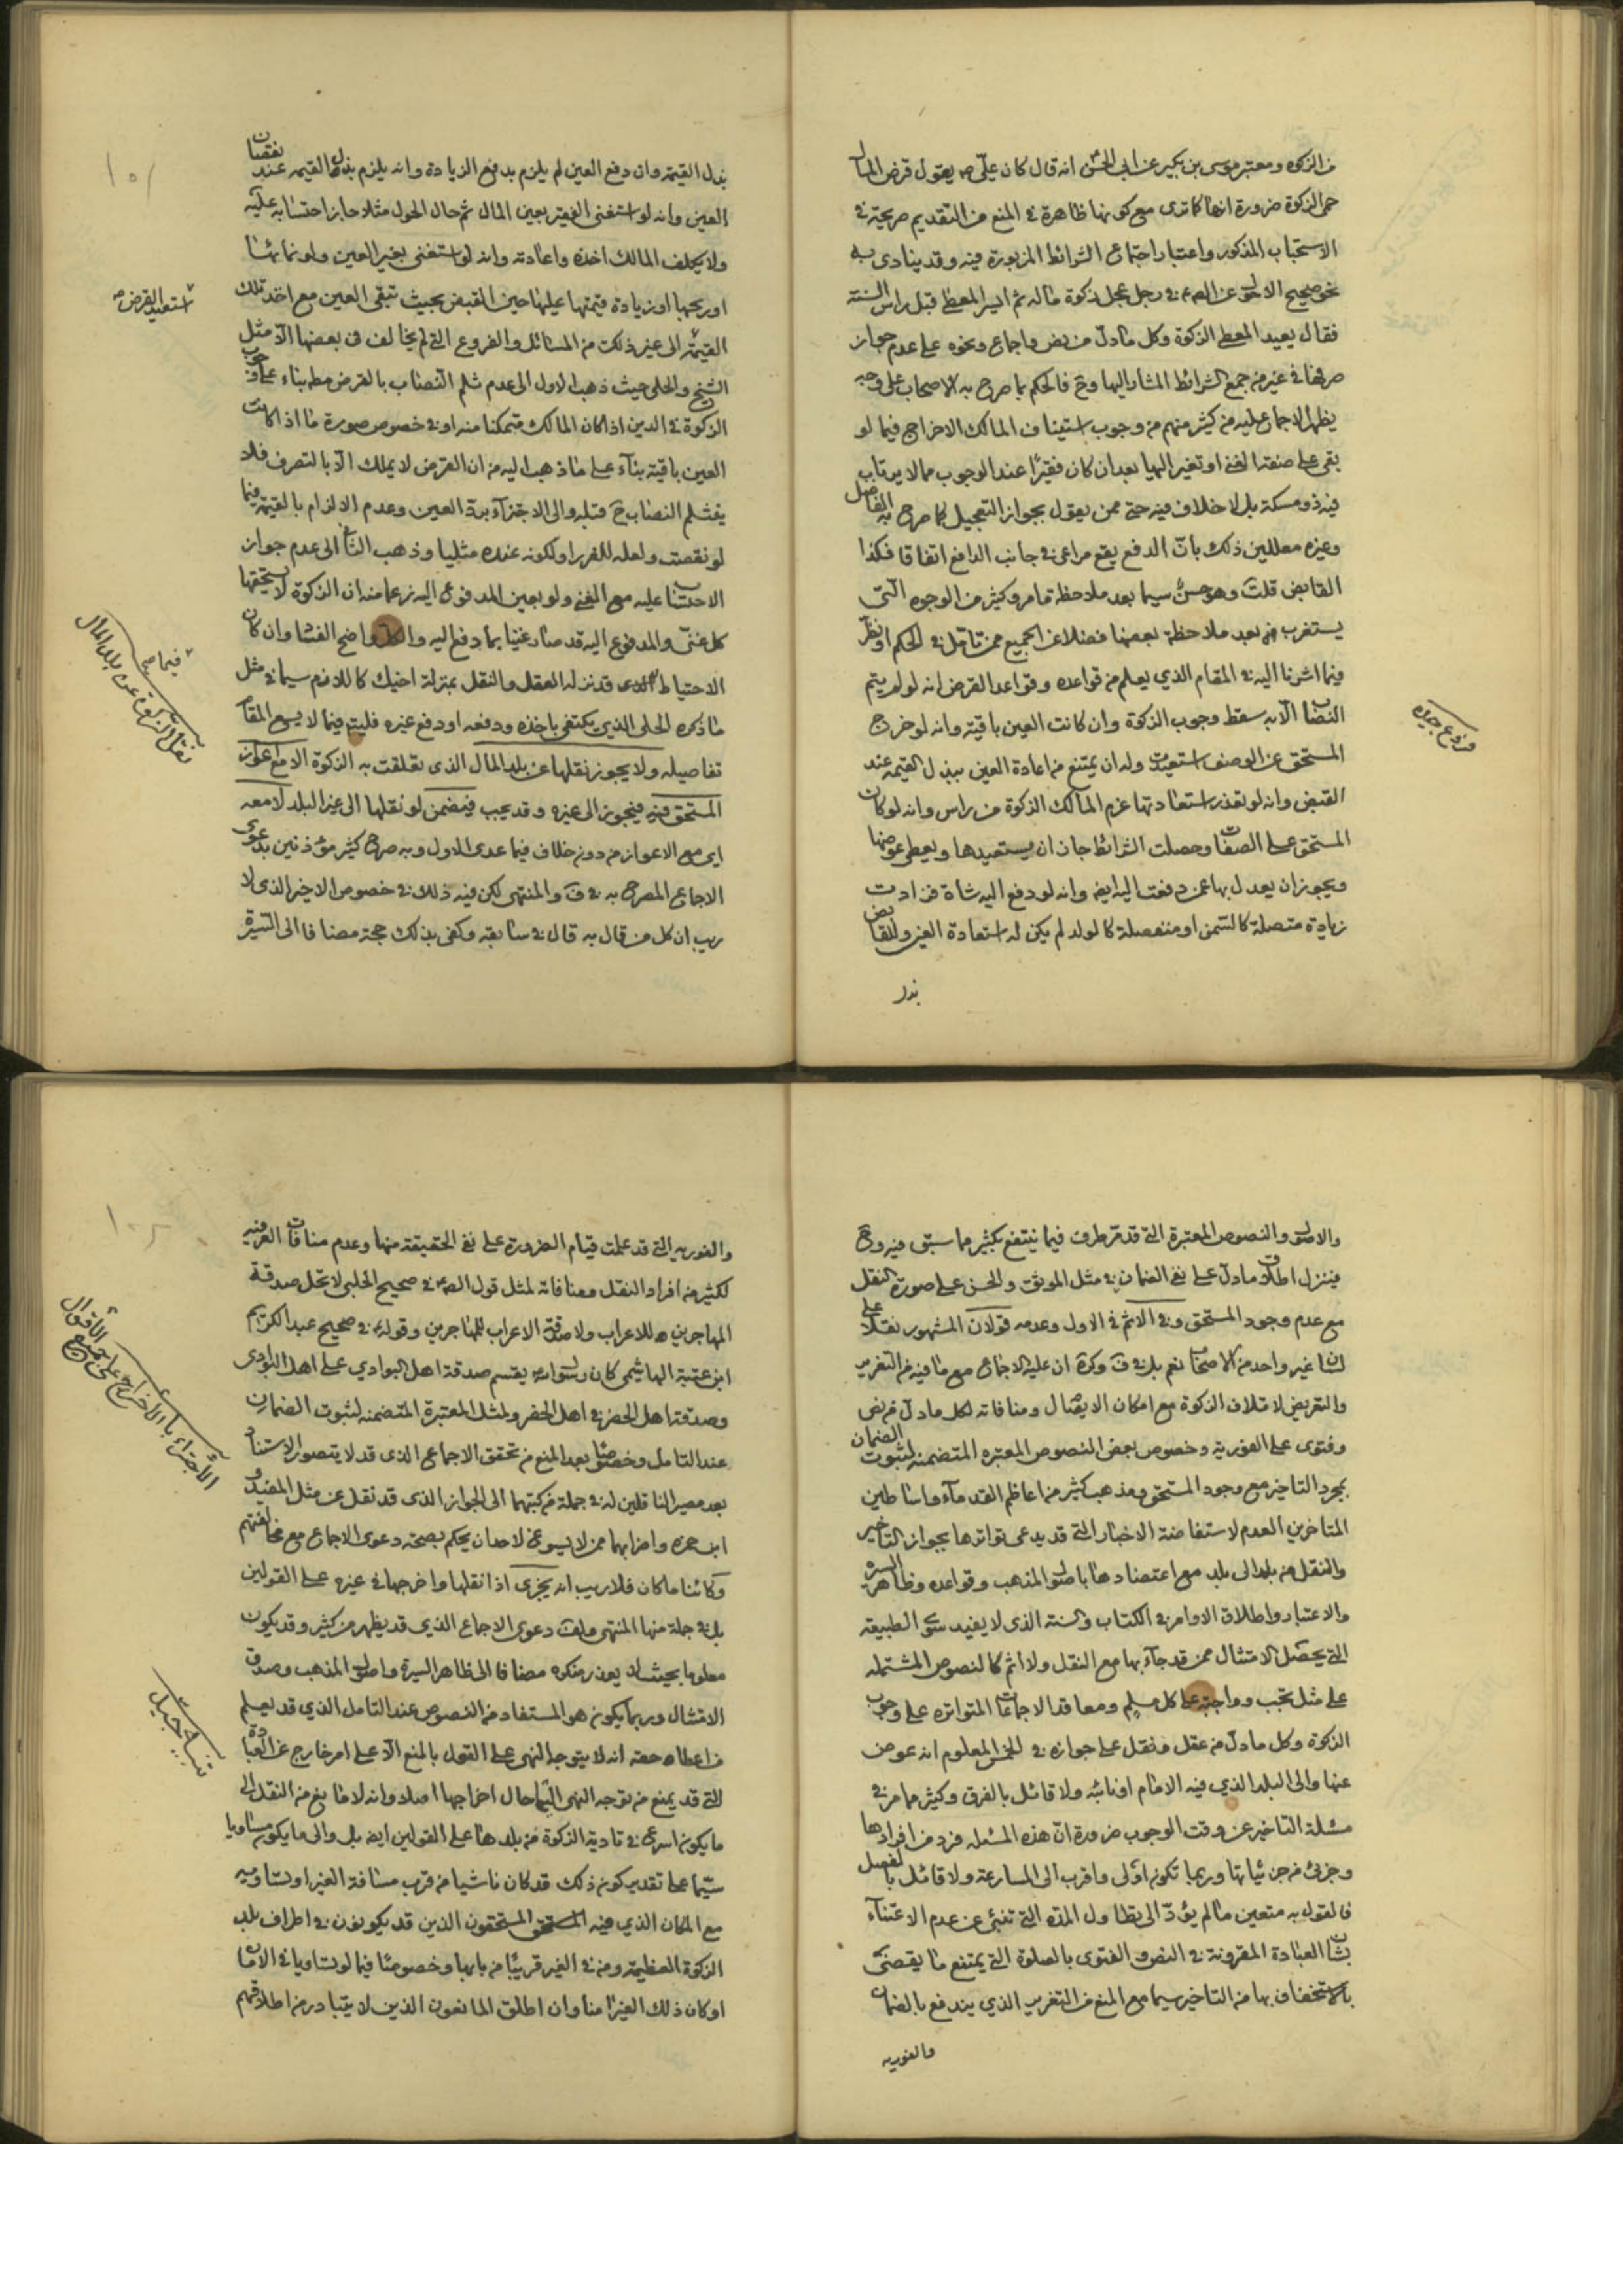 من الزكوة ومعتبر موسى بن بكير عن ابي الحسن انه قال كان علي ص يقول قرض المال
حمى الزكوة ضرورة انها كما ترى مع كونها ظاهرة في المنع من التقديم صريحة في
الاستحباب المذكور واعتبار اجتماع الشرائط المزبورة فيه وقد ينادى به
نحو صحيح الاحول عن الصم في رجل عجل زكوة ماله ثم ايسر المعطى قبل راس السنة
فقال يعيد المعطي الزكوة وكل مادل من نص واجماع ونحوه على عدم جواز
صرفها في غير من جمع الشرائط المشار اليها وح فالحكم بما صرح به الاصحاب على وجه
يظهر الاجماع عليه من كثير منهم من وجوب استيناف المالك الاخراج فيما لو
بقى على صفة الغنى او تغير اليها بعد ان كان فقيرًا عند الوجوب مما لا يرتاب
فيه ذو مسكة بل لا خلاف فيه حتى ممن يقول بجواز التعجيل كما صرح به الفاضل
وغيره معللين ذلك بان الدفع يقع مراعى في جانب الدافع اتفاقا فكذا
القابض قلت وهو حسن سيما بعد ملاحظة مامر وكثير من الوجوه التي
يستغرب من بعد ملاحظة بعضها فضلا عن الجميع ممن تامل في الحكم او نظر
فيما اشرنا اليه في المقام الذي يعلم من قواعده وقواعد القرض انه لو لم يتم
النصاب الا به سقط وجوب الزكوة وان كانت العين باقية وانه لو خرج
المستحق عن الوصف استعيدت وله ان يمتنع من اعادة العين ببذل القيمة عند
القبض وانه لو تعذر استعادتها غرم المالك الزكوة من راس وانه لو كان
المستحق على الصفات وحصلت الشرائط جاز ان يستعيدها ويعطي عوضها
ويجوز ان يعدل بها عمن دفعت اليه ايض وانه لو دفع اليه شاة فزادت
زيادة متصلة كالسمن او منفصلة كالولد لم يكن له استعادة العين وللقابض
بذل
فروع جيده
بذل القيمة وان دفع العين لم يلزم بدفع الزيادة وانه يلزم بذلك القيمه عند نقصان
العين وانه لو استغنى الفقير بعين المال ثم حال الحول مثلا جاز احتسابه عليه
ولا يكلف المالك اخذه واعادته وانه لو استغنى بغير العين ولو نمائها
او ربحها او زيادة قيمتها عليها حين القبض بحيث تبقى العين مع اخذ تلك
القيمة الى غير ذلك من المسائل والفروع التي لم يخالف في بعضها الا مثل
الشيخ والحلي حيث ذهب الاول الى عدم ثلم النصاب بالقرض مطر بناء على وجوب
الزكوة في الدين اذا كان المالك متمكنا منه او في خصوص صورة ما اذا كانت
العين باقية بناء على ما ذهب اليه من ان القرض لا يملك الا بالتصرف فلا
ينثلم النصاب ح قبله والى الاجتزاء برد العين وعدم الالزام بالقيمة فيما
لو نقصت ولعله للضرر او لكونه عنده مثليا وذهب الثاني الى عدم جواز
الاحتساب عليه مع الغنى ولو بعين المدفوع اليه زعما منه ان الزكوة لا يستحقها
كل غني والمدفوع اليه قد صار غنيا بما دفع اليه والكل واضح الفساد وان كان
الاحتياط الذى قد نزله العقل والنقل بمنزلة اخيك كاللازم سيما في مثل
ما ذكره الحلي الذي يكتفى باخذه ودفعه او دفع غيره فليتم فيما لا يسع المقام
تفاصيله ولا يجوز نقلها عن بلد المال الذى تعلقت به الزكوة الا مع اعواز
المستحق فيه فيجوز الى غيره وقد يجب فيضمن لو نقلها الى غير البلد لا معه
اى مع الاعواز من دون خلاف فيما عدى الاول وبه صرح كثير مؤذنين بدعوى
الاجماع المصرح به في ف والمنتهى لكن فيه ذلك في خصوص الاخير الذى لا
ريب ان كل من قال به قال في سابقه وكفى بذلك حجة مضافا الى السيرة
استعيد القرض
نقل الزكوة عن بلد المال
والاصول والنصوص المعتبرة التي قد مر طرف فيما ينتفع بكثير مما سبق فيه وح
فينزل اطلاق مادل على نفى الضمان في مثل الموثق والحسن على صورة النقل
مع عدم وجود المستحق وفي الاثم في الاول وعدمه قولان المشهور نقلا على
لسان غير واحد من الاصحاب نعم بل في ف وكرة ان عليه الاجماع مع ما فيه من التغرير
والتعريض لاتلاف الزكوة مع امكان الايصال ومنافاته لكل مادل من نص
وفتوى على الفورية وخصوص بعض النصوص المعتبره المتضمنه لثبوت الضمان
بمجرد التاخير مع وجود المستحق ومذهب كثير من اعاظم القدماء واساطين
المتاخرين العدم لاستفاضة الاخبار التي قد يدعى تواترها بجواز التاخير
والنقل من بلد الى بلد مع اعتضادها باصول المذهب وقواعده وظاهر السيرة
والاعتبار واطلاق الاوامر في الكتاب والسنة الذى لا يفيد سوى الطبيعة
التي يحصل الامتثال ممن قد جاء بها مع النقل ولا اثم كالنصوص المشتمله
على مثل تجب وواجبة على كل مسلم ومعاقد الاجماعات المتواتره على وجوب
الزكوة وكل مادل من عقل ونقل على جوازه في الخمس المعلوم انه عوض
عنها والى البلد الذي فيه الامام او نائبه ولا قائل بالفرق وكثير مما مر في
مسئلة التاخير عن وقت الوجوب ضرورة ان هذه المسئله فرد من افرادها
وجزئي من جزئياتها وربما تكون اولى واقرب الى المسارعة ولا قائل بالفصل
فالقول به متعين ما لم يؤد الى تطاول المدة التي تنبئ عن عدم الاعتناء
بشان العبادة المقرونة في النص والفتوى بالصلوة التي يمتنع ما يقضى
بالاستخفاف بها من التاخير سيما مع المنع من التغرير الذي يندفع بالضمان
والفوريه
والفوريه التي قد علمت قيام الضرورة على نفى الحقيقة منها وعدم منافات العرفيه
لكثير من افراد النقل ومنافاته لمثل قول الصم في صحيح الحلبي لا تحل صدقة
المهاجرين للاعراب ولا صدقة الاعراب للمهاجرين وقوله في صحيح عبد الكريم
ابن عتبة الهاشمي كان رسول الله يقسم صدقة اهل البوادي على اهل البوادى
وصدقة اهل الحضر في اهل الحضر ولمثل المعتبرة المتضمنه لثبوت الضمان
عند التامل وخصوصا بعد المنع من تحقق الاجماع الذى قد لا يتصور الاستناد
بعد مصير الناقلين له في جملة من كتبهما الى الجواز الذى قد نقل عن مثل المفيد و
ابن حمزه واضرابهما ممن لا يسوغ لاحد ان يحكم بصحة دعوى الاجماع مع مخالفتهم
وكائنا ما كان فلا ريب انه يجزى اذا نقلها واخرجها في غيره على القولين
بل في جملة منها المنتهى ولف دعوى الاجماع الذي قد يظهر من كثير وقد يكون
معلوما بحيث لا يعذر منكره مضافا الى ظاهر السيرة واصول المذهب وصدق
الامتثال وربما يكون هو المستفاد من النصوص عند التامل الذي قد يعلم
من اعطاه حقه انه لا يتوجه النهى على القول بالمنع الا على امر خارج عن العبادة
التي قد يمنع من توجه النهى اليها حال اخراجها اصلا وانه لا مانع من النقل الى
ما يكون اسرع في تادية الزكوة من بلدها على القولين ايض بل والى ما يكون مساويا
سيما على تقدير كون ذلك قد كان ناشيا من قرب مسافة الغير او تساويه
مع المكان الذي فيه المستحقون الذين قد يكونون في اطراف بلد
الزكوة العظيمة ومن في الغير قريبًا من بابها وخصوصًا فيما لو تساويا في الامان
او كان ذلك الغير امنا وان اطلق المانعون الذين لا يتبادر من اطلاقهم
الاجتزاء بالاخراج على جميع الاقوال
تنبيه جميل